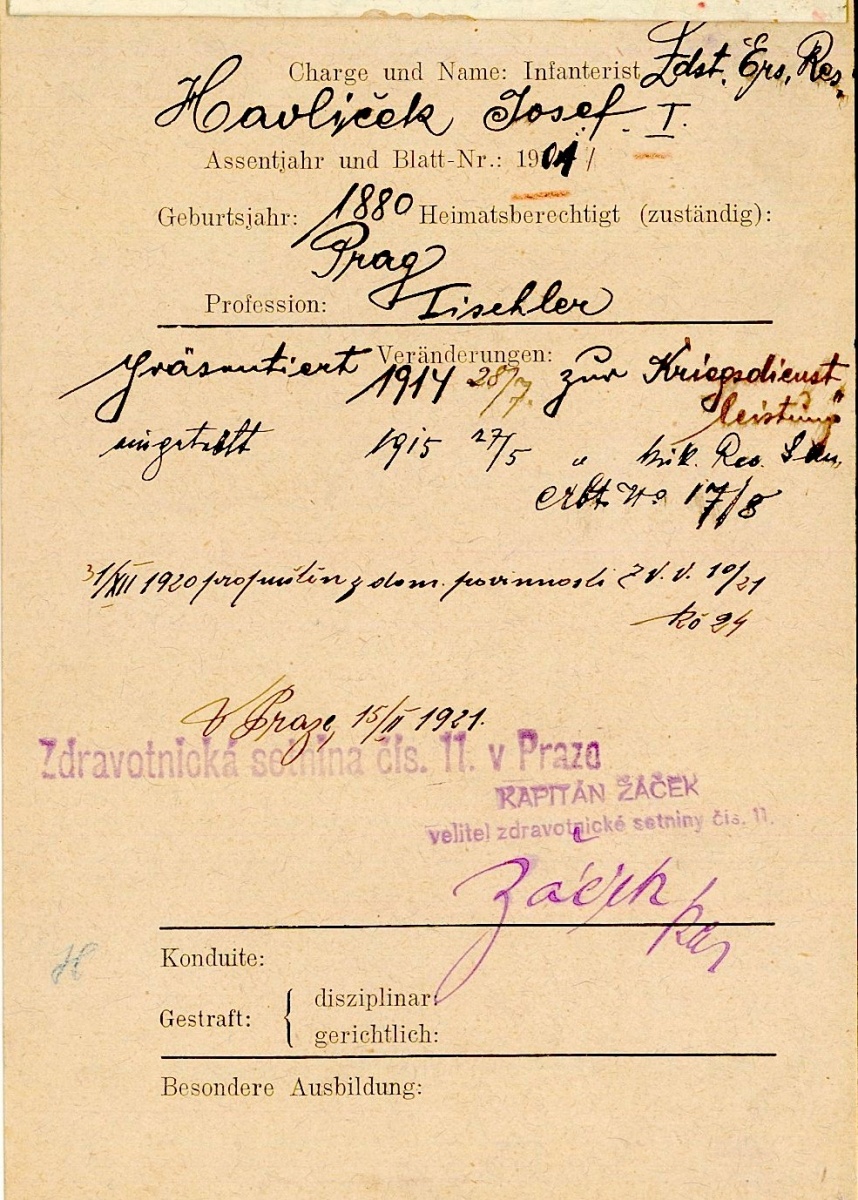 Charge und Name: Infanterist Ldst. Ers. Res.
Havlíček Josef I.
Assentjahr und Blatt-Nr.: 1901 /
Geburtsjahr: 1880 Heimatsberechtigt (zuständig):
Prag
Profession: Tischler
Veränderungen:
Präsentiert 1914 28/7. zur Kriegsdienst
leistung
eingeteilt 1915 27/5 " k.u.k. Res. San.
Abt. No 17/8
31/XII 1920 propuštěn z dom. povinnosti Z V. V. 10/21
Kő 24
V Praze, 15/II 1921.
Zdravotnická setnina čís. 11. v Praze
KAPITÁN ŽÁČEK
velitel zdravotnické setniny čís. 11.
Žáček kap
H
Konduite:
Gestraft: { disziplinar:
gerichtlich:
Besondere Ausbildung: